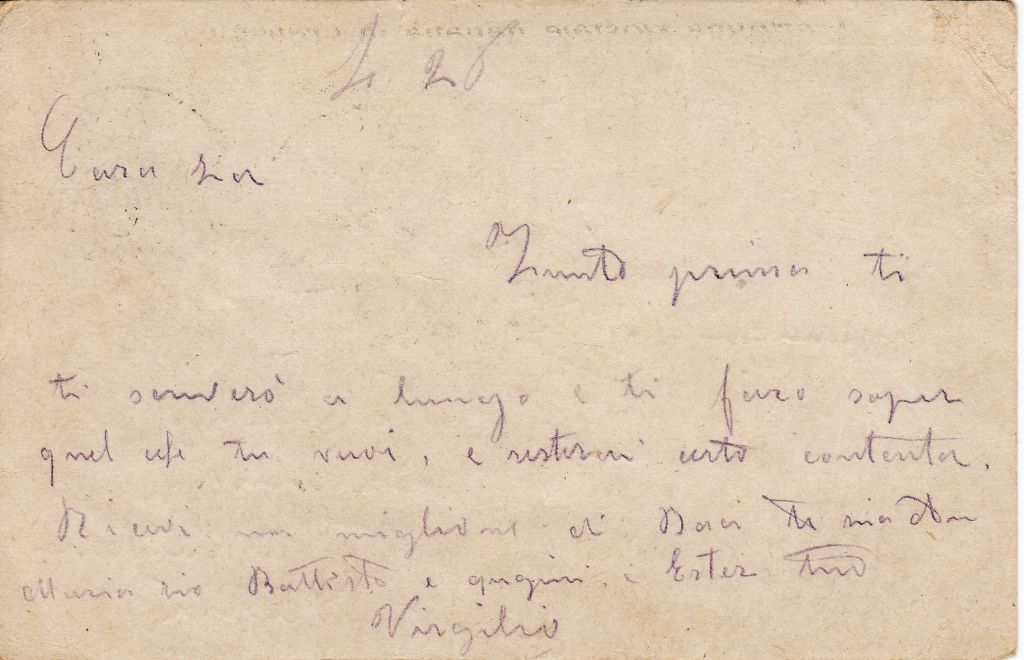 Cara zia
prima ti
ti scriverò a lungo e ti farò saper
quel che tu vuoi, e resterai certo contenta.
Ricevi un miglione di Baci tu mia
Maria zio Battista e qugini. e Ester tuo
Virgilio